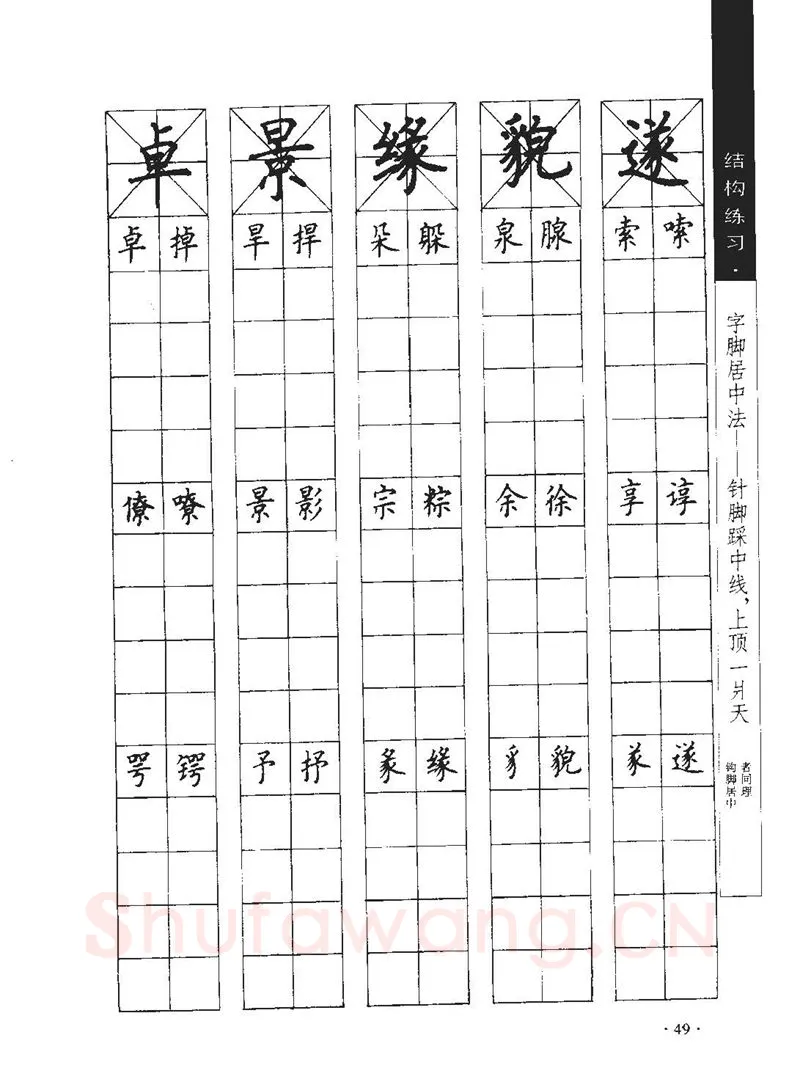 卓 景 缘 貌 遂
卓 掉 旱 捍 朵 躲 泉 腺 索 嗦
僚 嘹 景 影 宗 粽 余 徐 享 谆
咢 锷 予 抒 彖 缘 豸 貌 㒸 遂
结构练习·
字脚居中法——针脚踩中线，上顶一片天
钩脚居中
者同理
Shufawang.CN
·49·